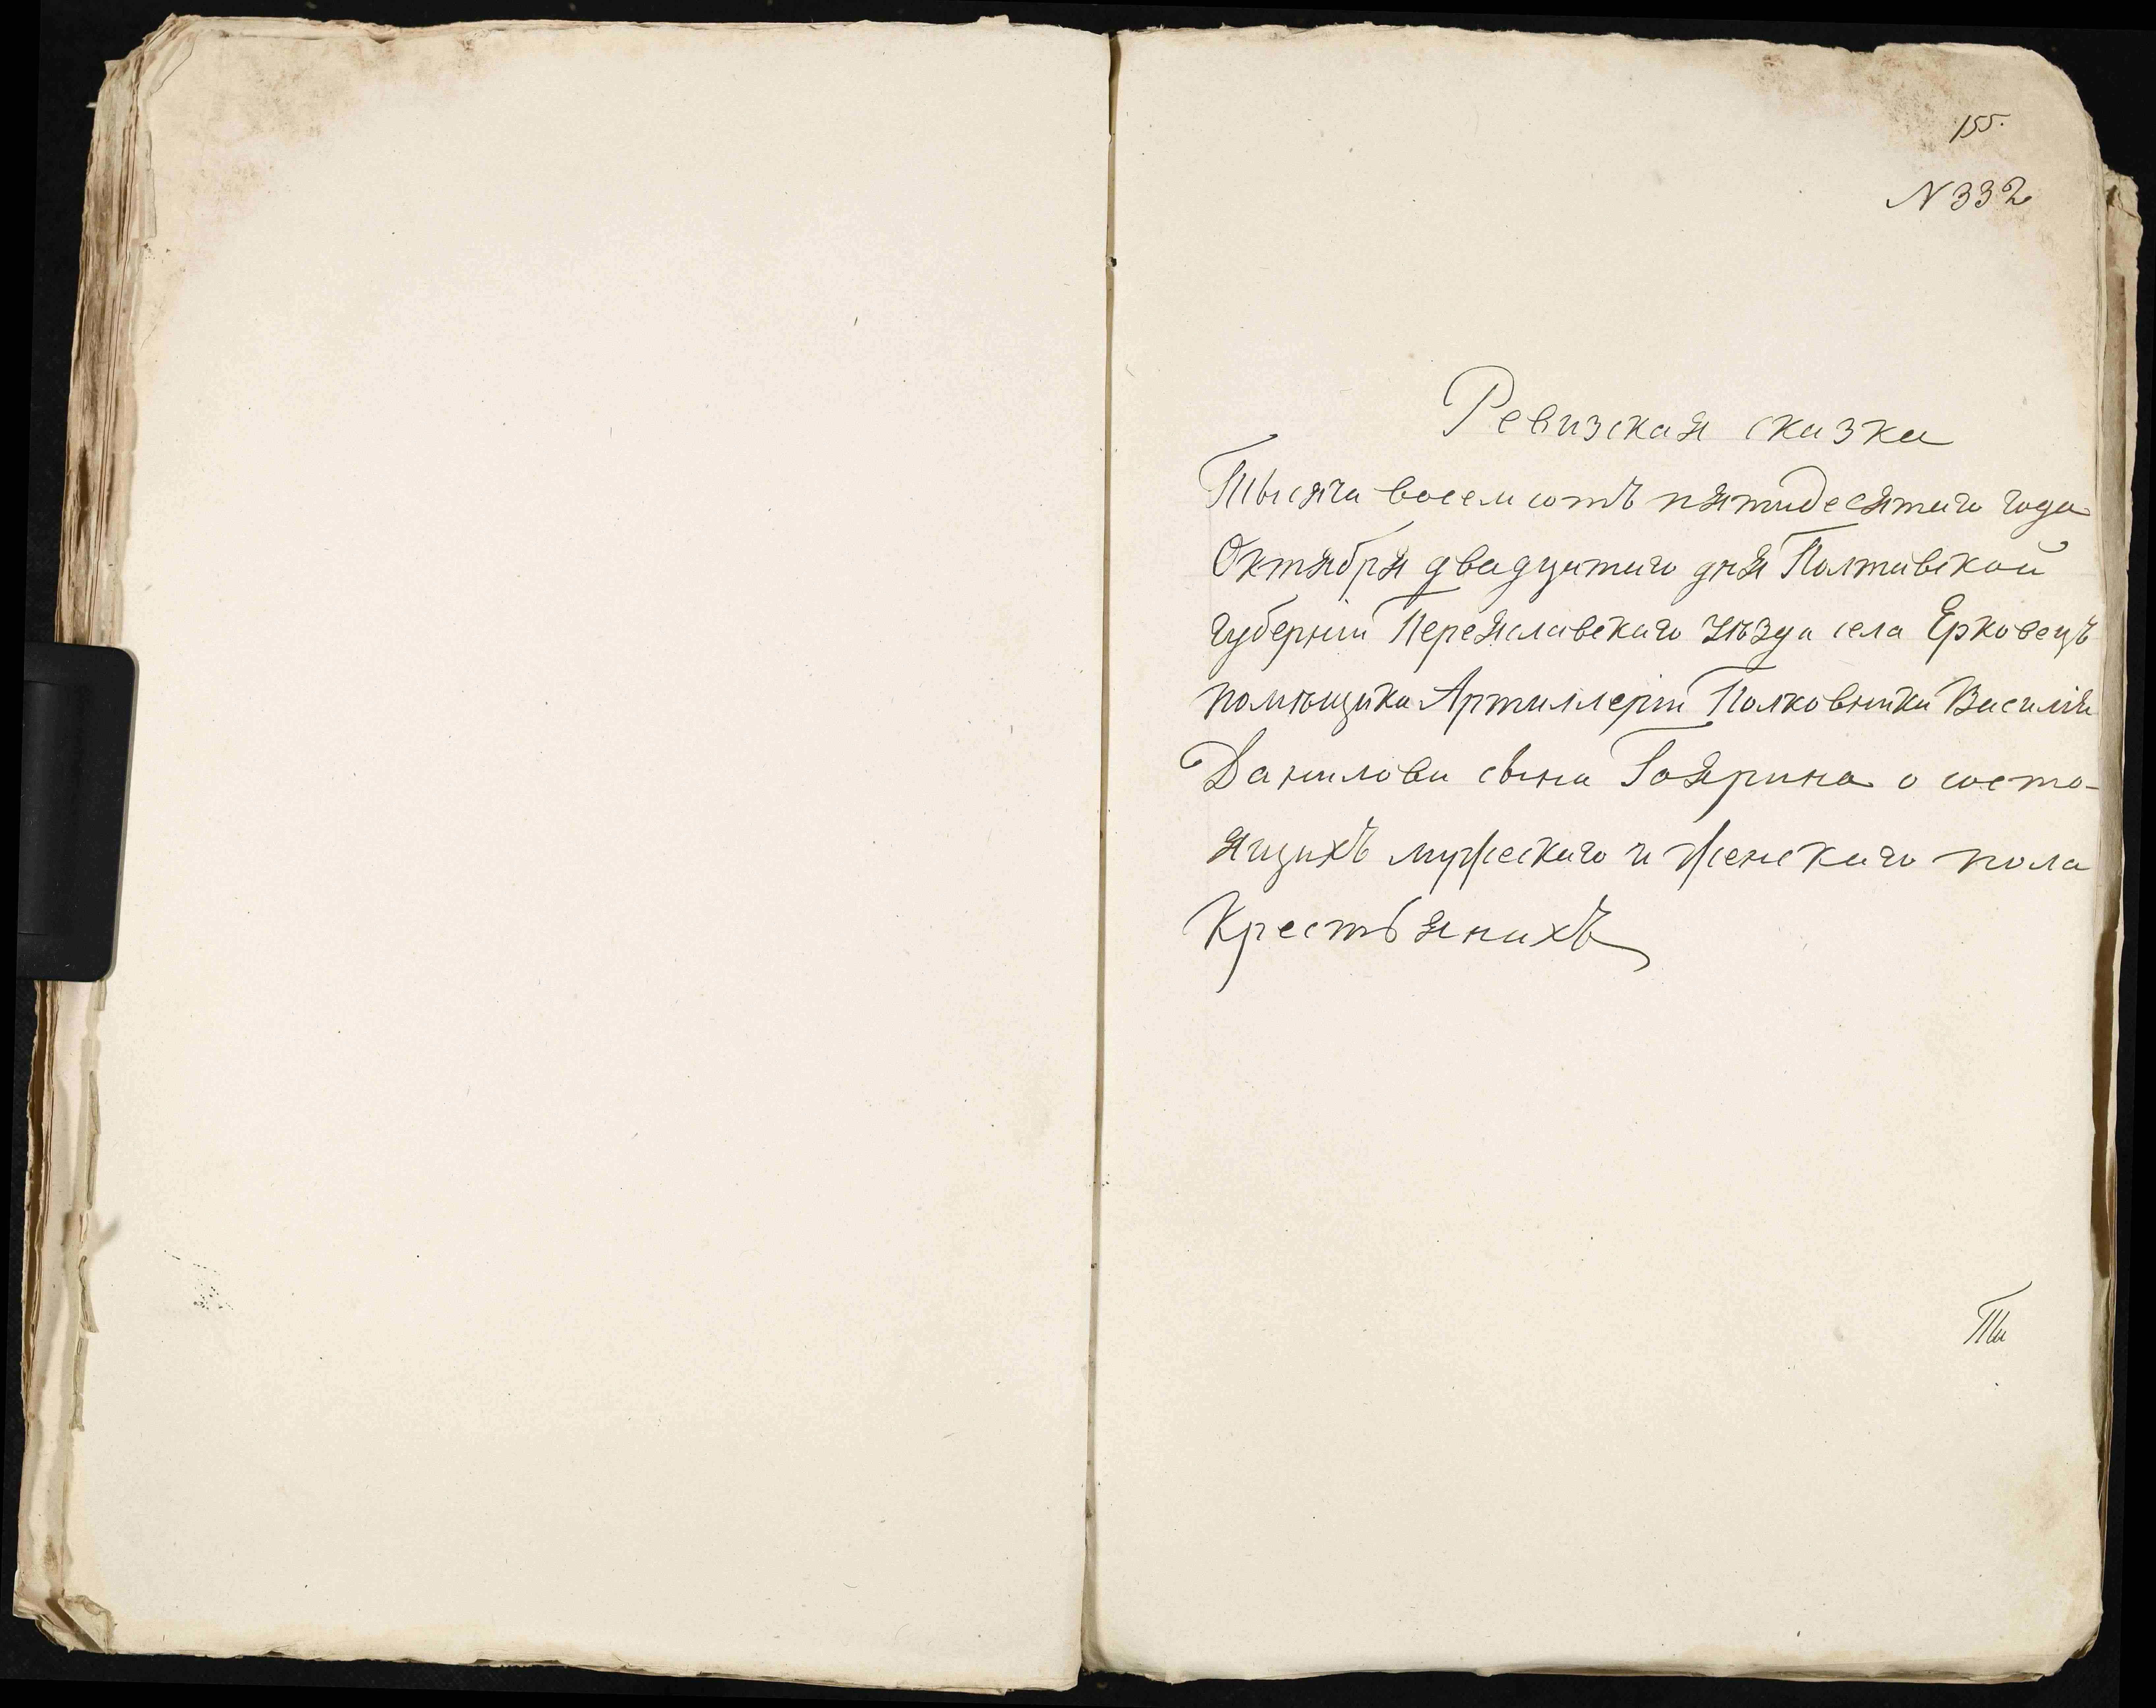 155.
N 332
Ревизская сказка
Тысяча восемсотъ пятидесятаго года
Октября двадцатаго дня Полтавской
губерніи Переяславскаго уѣзда села Ерковецъ
помѣщика Артиллеріи Полковника Василія
Данилова сына Гоярина о состо-
ящихъ мужескаго и женскаго пола
Крестьянахъ